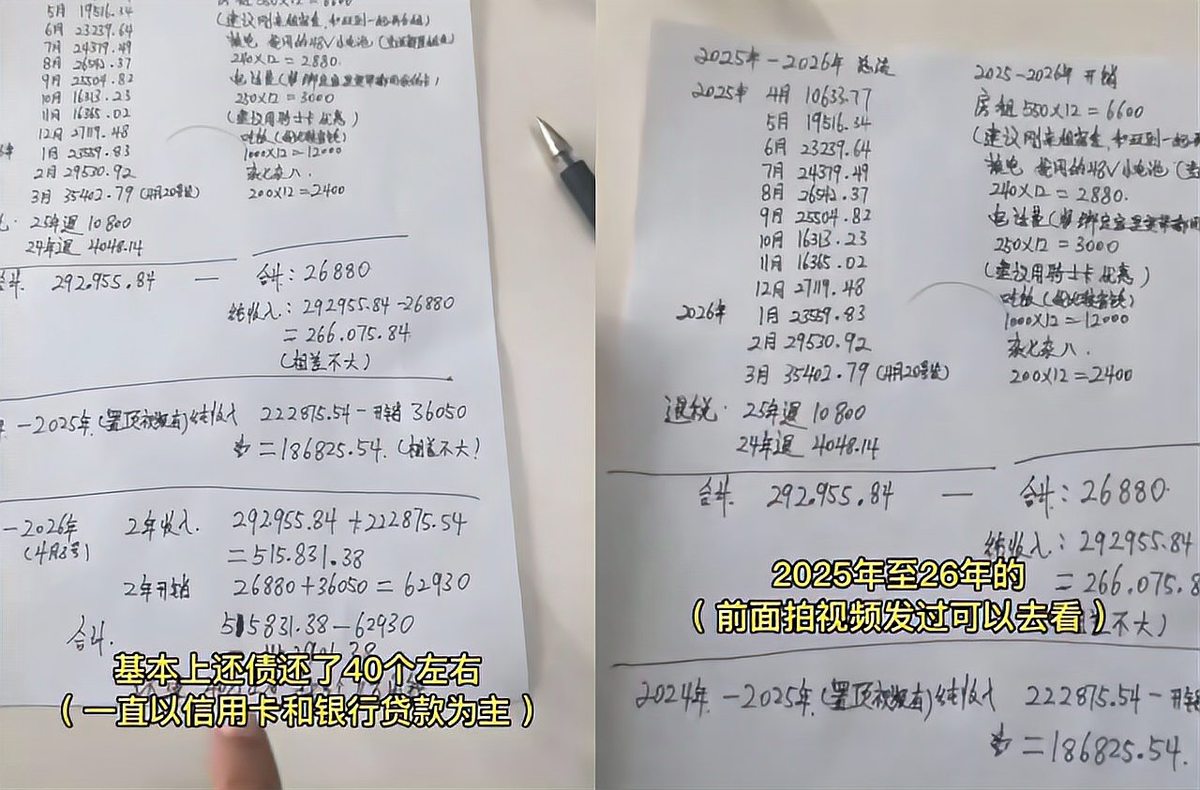 5月 19516.34
6月 23239.64
7月 24379.49
8月 26542.37
9月 25504.82
10月 16313.23
11月 16365.02
12月 27119.48
1月 23559.83
2月 29530.92
3月 35402.79 (4月20号发)
25年退 10800
24年退 4048.14
合计. 292.955.84 —
房租 550×12=6600
(建议刚来租宿舍,
换电 套用的48V小电池
240×12=2880.
250×12=3000
(建议用骑士卡优惠)
吃饭
1000×12=12000
杂七杂八.
200×12=2400
合计: 26880
纯收入: 292955.84-26880
=266.075.84
(相差不大)
-2025年.(置顶视频有)纯收入 222875.54-开销36050
=186825.54. (相差不大!
-2026年 2年收入. 292955.84+222875.54
(4月3号) =515.831.38
2年开销 26880+36050=62930
合计. 515831.38-62930
基本上还债还了40个左右
(一直以信用卡和银行贷款为主)
2025年-2026年 总流
2025年 4月 10633.77
5月 19516.34
6月 23239.64
7月 24379.49
8月 26542.37
9月 25504.82
10月 16313.23
11月 16365.02
12月 27119.48
2026年 1月 23559.83
2月 29530.92
3月 35402.79 (4月20号发)
退税. 25年退 10800
24年退 4048.14
合计. 292.955.84 —
2025-2026年 开销
房租 550×12=6600
(建议刚来租宿舍,
换电 套用的48V小电池
240×12=2880.
250×12=3000
(建议用骑士卡优惠)
吃饭
1000×12=12000
杂七杂八.
200×12=2400
合计: 26880.
纯收入: 292955.84
=266.075.8
不大)
2025年至26年的
(前面拍视频发过可以去看)
2024年-2025年.(置顶视频有)纯收入 222875.54-开销
=186825.54.